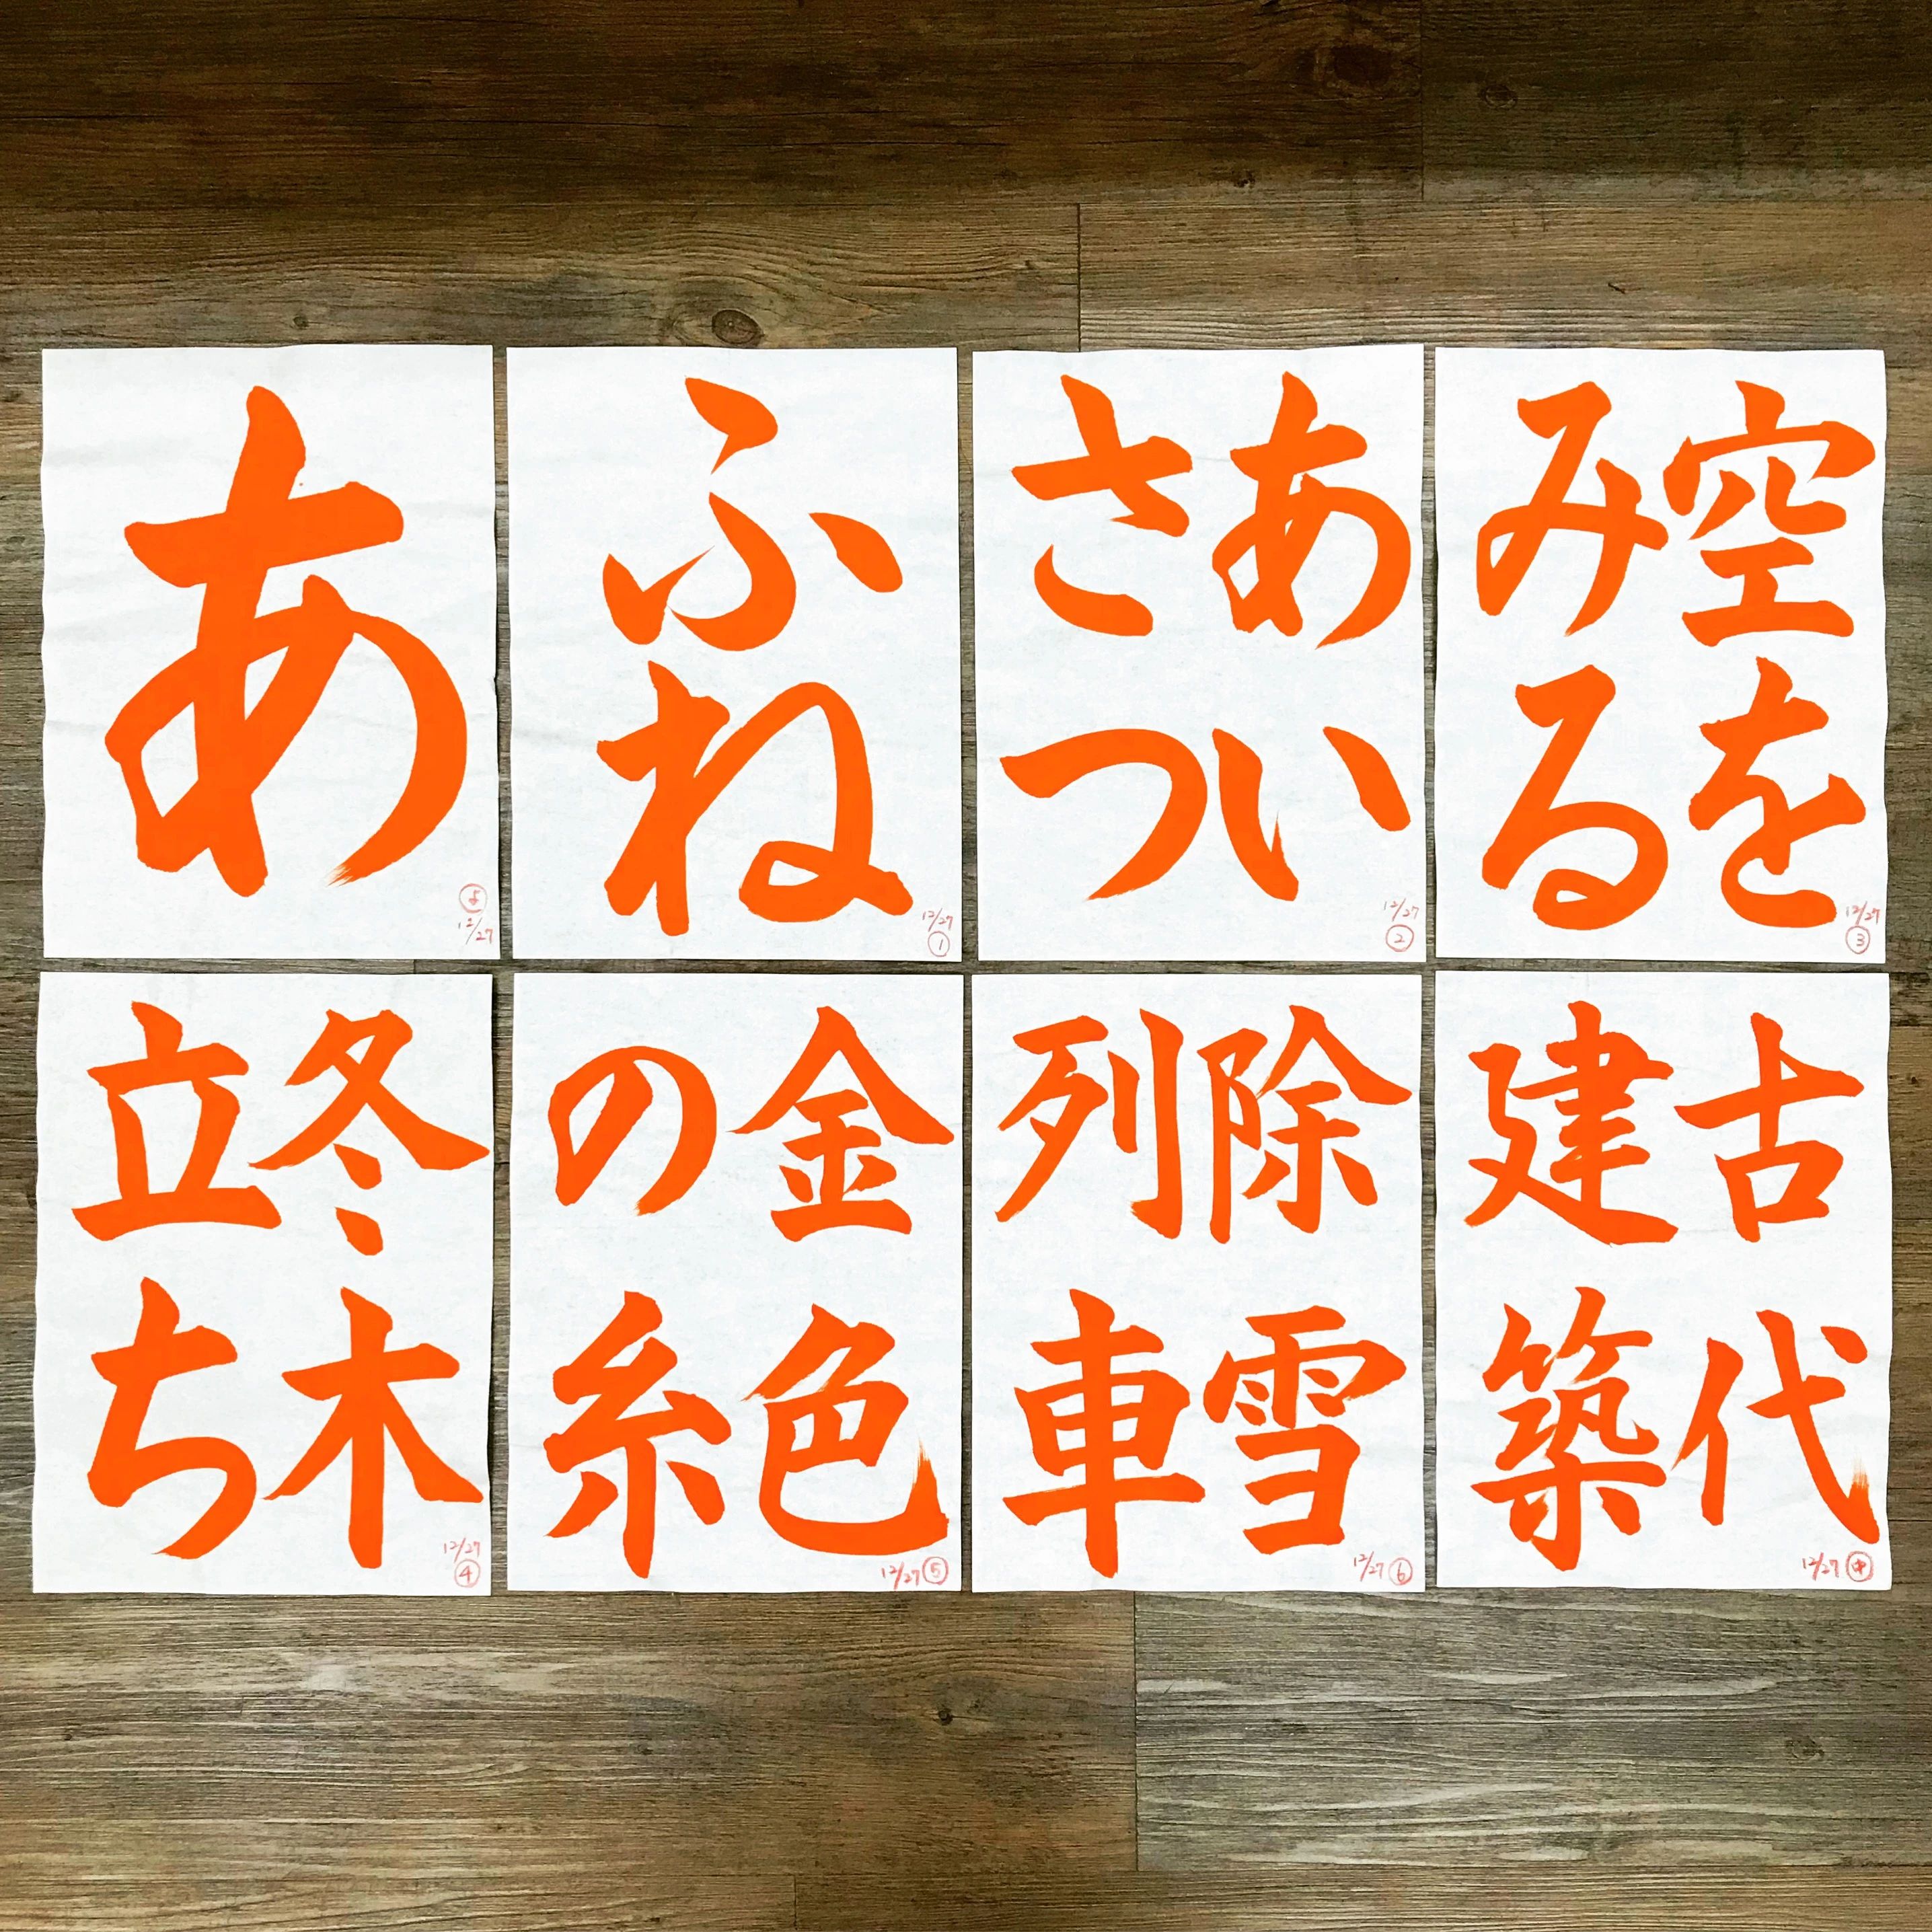 あ
よ
12/27
ふね
12/27
①
あい
さつ
12/27
②
空を
みる
12/27
③
冬木
立ち
12/27
④
金色
の糸
12/27 ⑤
除雪
列車
12/27 ⑥
古代
建築
12/27 中